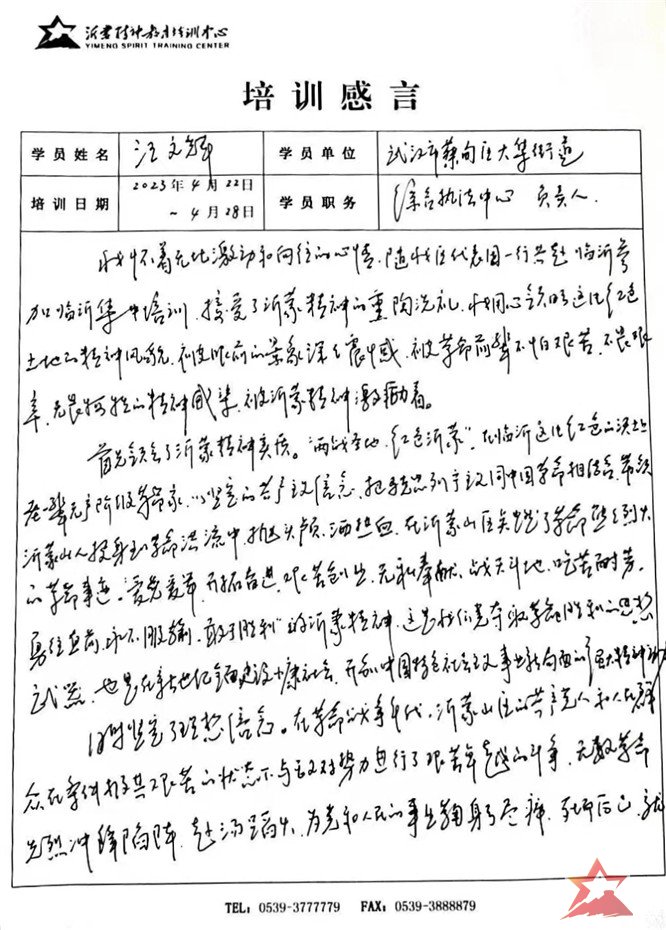 沂蒙精神教育培训中心
YIMENG SPIRIT TRAINING CENTER
培训感言
学员姓名 汪文辉 学员单位 武汉市蔡甸区大集街道
培训日期 2023年4月22日 ~4月28日 学员职务 综合执法中心 负责人
我怀着无比激动和向往的心情,随我区代表团一行共赴临沂参
加临沂集中培训,接受了沂蒙精神的熏陶洗礼,我用心领略这片红色
土地的精神风貌,和被眼前的景象深深震撼,被革命前辈不怕艰苦、不畏艰
辛、无畏牺牲的精神感染,被沂蒙精神激励着。
首先领会了沂蒙精神实质。“两战圣地、红色沂蒙”,在临沂这片红色的沃土上
老一辈无产阶级革命家,以坚定的共产主义信念,把马克思列宁主义同中国革命相结合,带领
沂蒙山人投身到革命洪流中,抛头颅、洒热血,在沂蒙山区
的革命事迹。爱党爱军、开拓奋进、艰苦创业、无私奉献,战天斗地、吃苦耐劳、
勇往直前、永不服输、敢于胜利”的沂蒙精神,这是我们党夺取革命胜利的思想
武器,也是在新世纪全面建设小康社会、开创中国特色社会主义事业新局面的强大精神动力
坚定了理想信念。在革命战争年代,沂蒙山区的共产党人和人民群
众在条件极其艰苦的状态下与敌对势力进行了艰苦卓越的斗争,无数革命
先烈冲锋陷阵、赴汤蹈火,为党和人民的事业鞠躬尽瘁、死而后已,
TEL: 0539-3777779 FAX: 0539-3888879